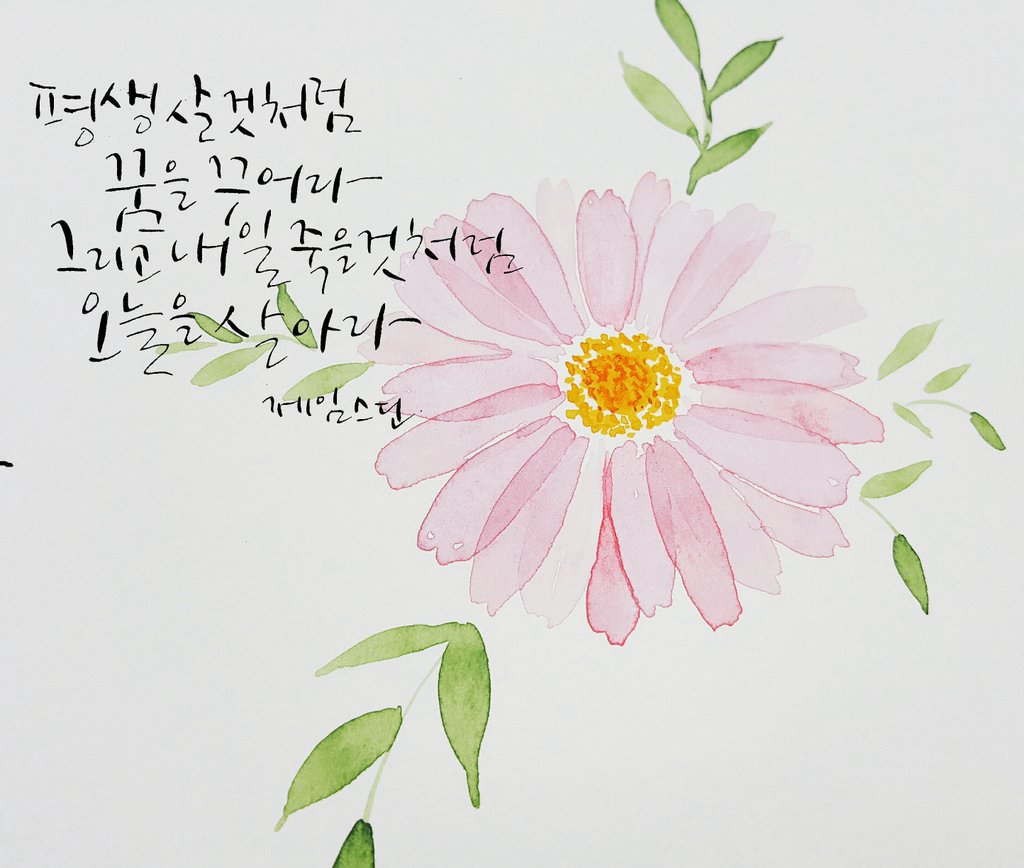 평생 살 것처럼
꿈을 꾸어라
그리고 내일 죽을 것처럼
오늘을 살아라
제임스딘